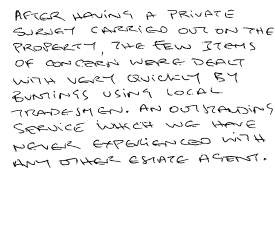 AFTER HAVING A PRIVATE
SURVEY CARRIED OUT ON THE
PROPERTY, THE FEW ITEMS
OF CONCERN WERE DEALT
WITH VERY QUICKLY BY
BUNTINGS USING LOCAL
TRADESMEN. AN OUTSTANDING
SERVICE WHICH WE HAVE
NEVER EXPERIENCED WITH
ANY OTHER ESTATE AGENT.